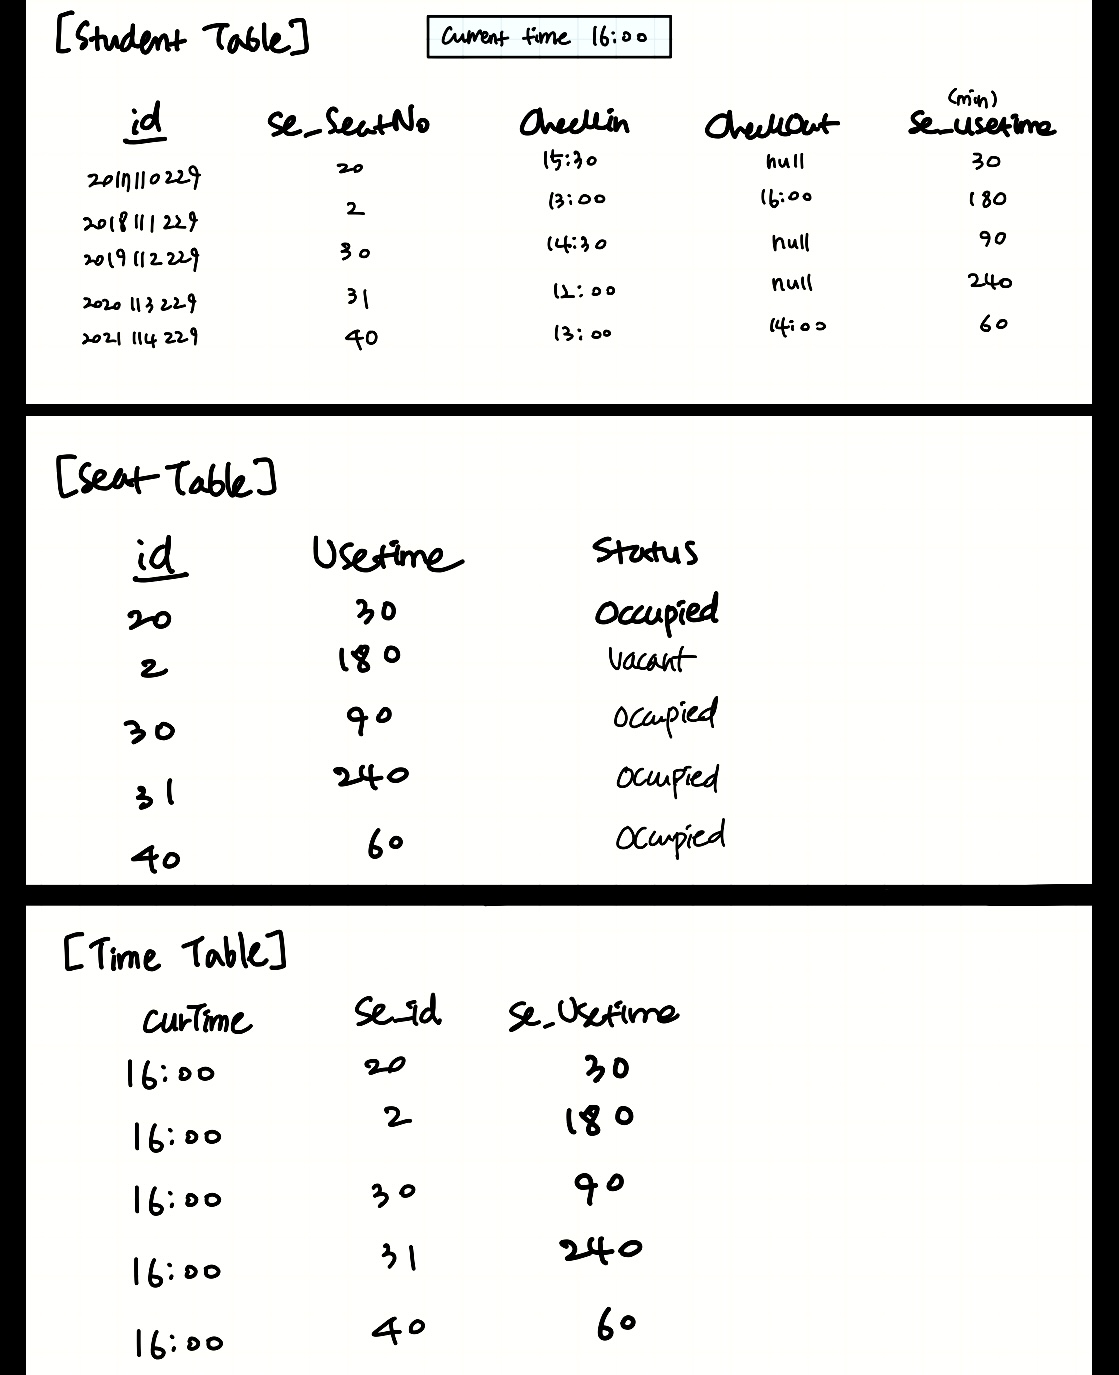 [Student Table]
Current time 16:00
(min)
id se_SeatNo CheckIn CheckOut se_usetime
2017110229 20 15:30 null 30
2018111229 2 13:00 16:00 180
2019112229 30 14:30 null 90
2020113229 31 12:00 null 240
2021114229 40 13:00 14:00 60
[Seat Table]
id Usetime Status
20 30 Occupied
2 180 Vacant
30 90 Occupied
31 240 Occupied
40 60 Occupied
[Time Table]
curTime Se_id se_Usetime
16:00 20 30
16:00 2 180
16:00 30 90
16:00 31 240
16:00 40 60